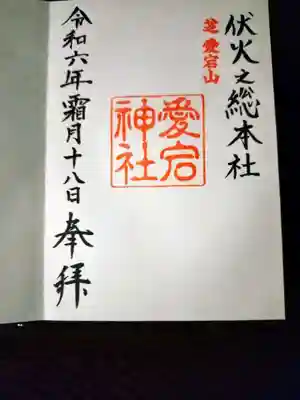 伏火之総本社
芝愛宕山
愛宕
神社
奉拝
令和六年霜月十八日